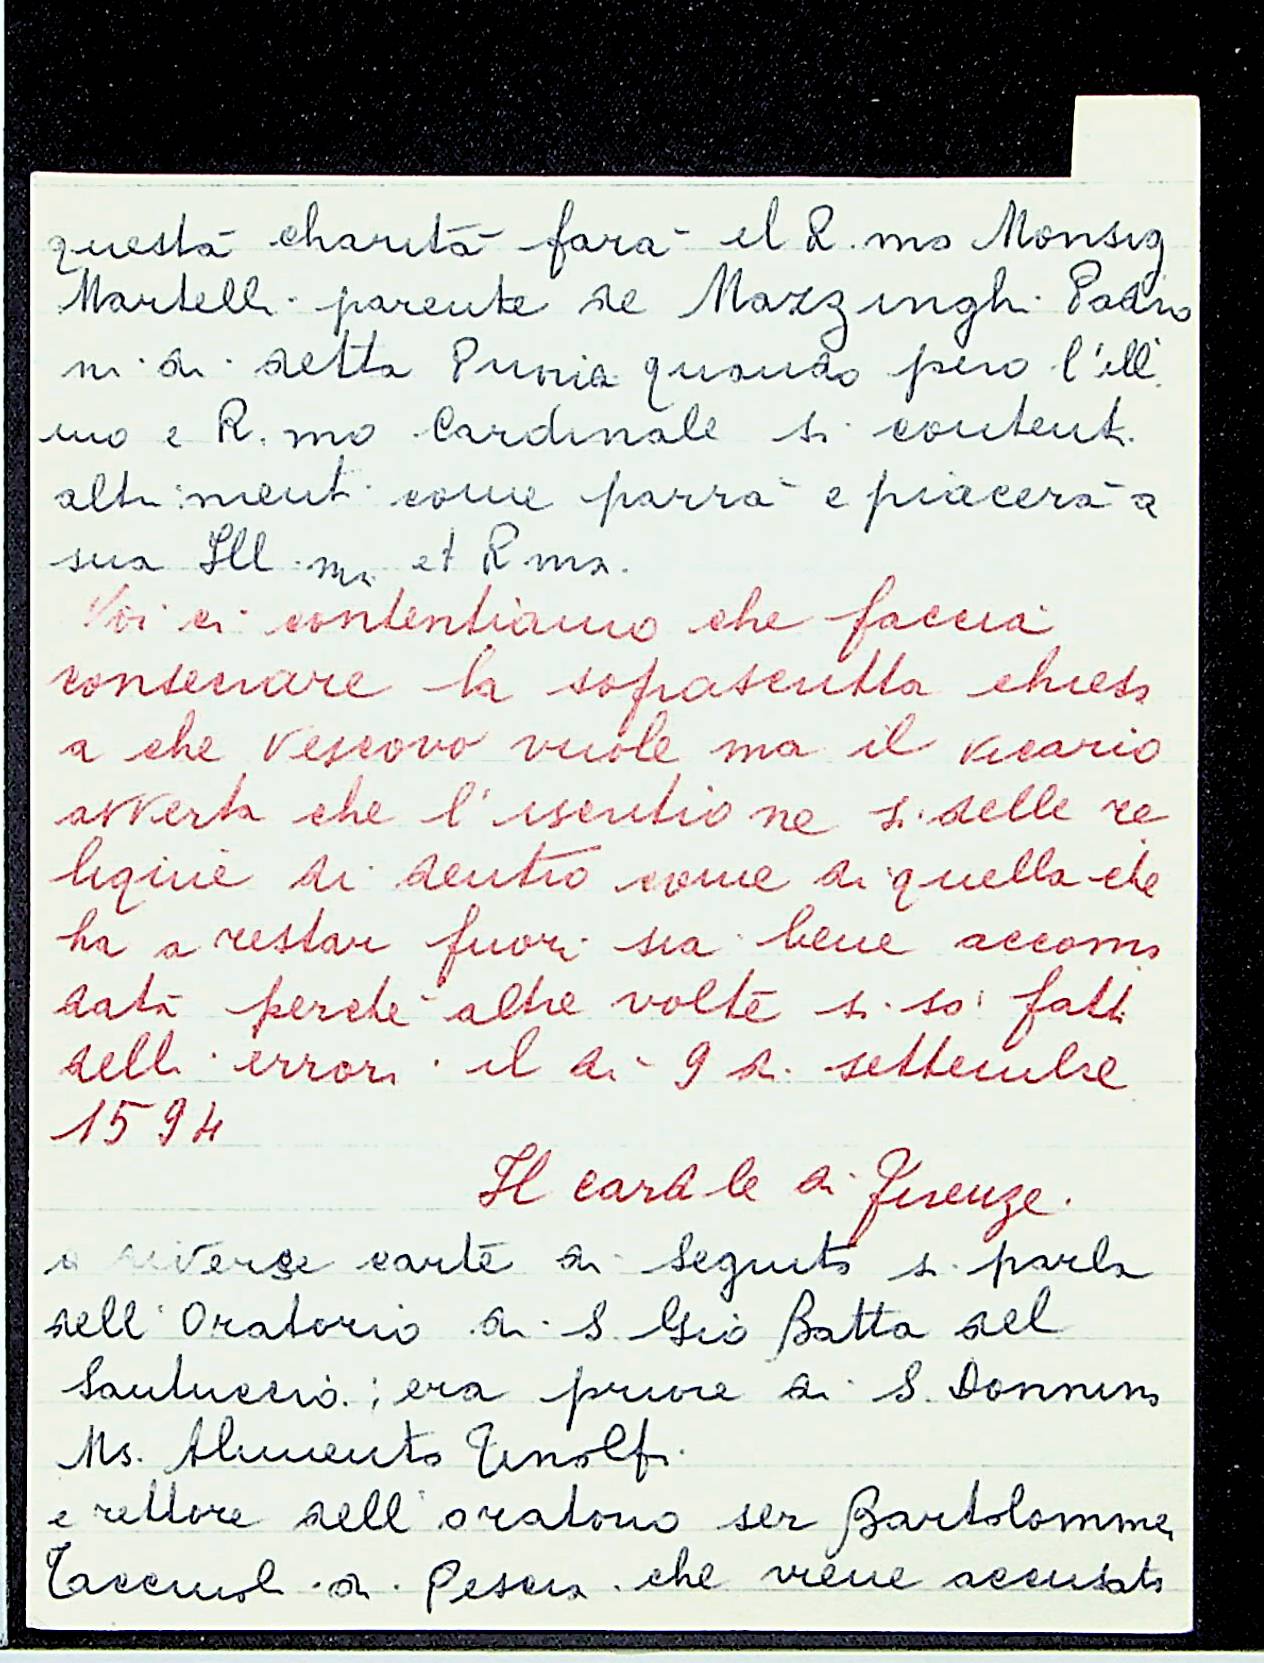 questa charità farà il R.mo Monsig
Martelli parente de Mazzinghi Padro
ni di detta quando pero l'ill
mo e R.mo Cardinale si contenti
altrimenti come parrà e piacerà a
sua Ill.ma et R ma.
Noi ci contentiamo che faccia
consecrare la soprascritta chiesa
a che Vescovo vuole ma il vicario
avverta che l'iscritione si delle re
liquie di dentro come di quella che
ha a restar fuori sia bene accomo
data perche altre volte si so fatti
delli errori il di 9 di settembre
1594
Il card le di Firenze.
a diverse carte di seguito si parla
dell'Oratorio di S. Gio Batta del
Santuccio; era priore di S. Donnino
Ms.
e rettore dell'oratorio ser Bartolommeo
di Pescia che viene accusato